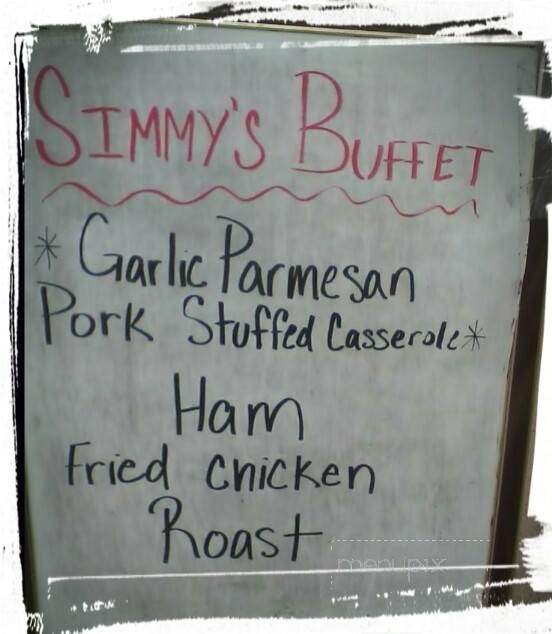 SIMMY'S BUFFET
* Garlic Parmesan
Pork Stuffed Casserole *
Ham
Fried Chicken
Roast
menupix